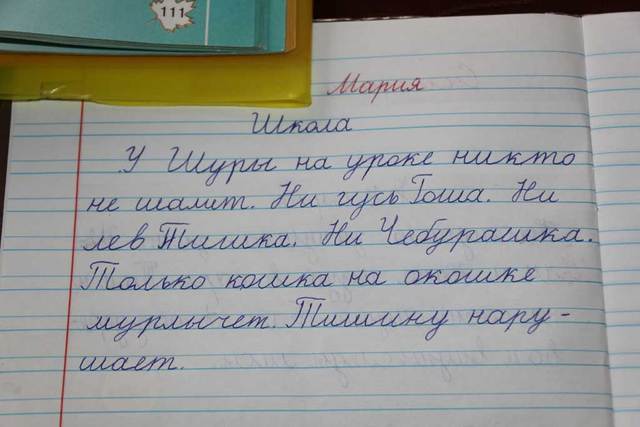 111
Мария
Школа
У Шуры на уроке никто
не шалит. Ни гусь Гоша. Ни
лев Тишка. Ни Чебурашка.
Только кошка на окошке
мурлычет. Тишину нару-
шает.